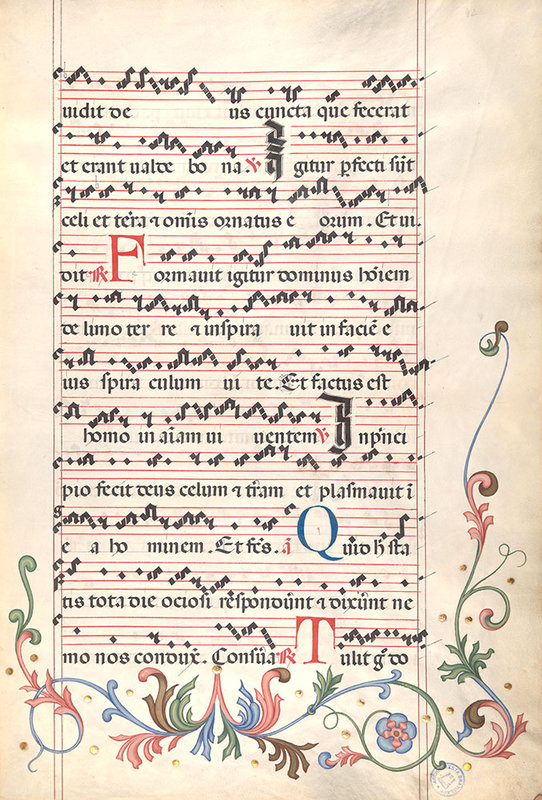 uidit de us cuncta que fecerat
et erant ualde bo na. ℣ Igitur ꝑfecti sūt
celi et terra ⁊ om̄is ornatus e orum. Et ui.
dit ℟ Formauit igitur dominus hoīem
de limo ter re ⁊ inspira uit in faciē e
ius spira culum ui te. Et factus est
homo in aīam ui uentem ℣ In pͥnci
pio fecit deus celum ⁊ tr̄am et plasmauit ī
e a ho minem. Et fcs̄. a᷑ Quid h̄ sta
tis tota die ociosi respondūnt ⁊ dixūnt ne
mo nos condux̄. Consūa ℟ Tulit g̊ do